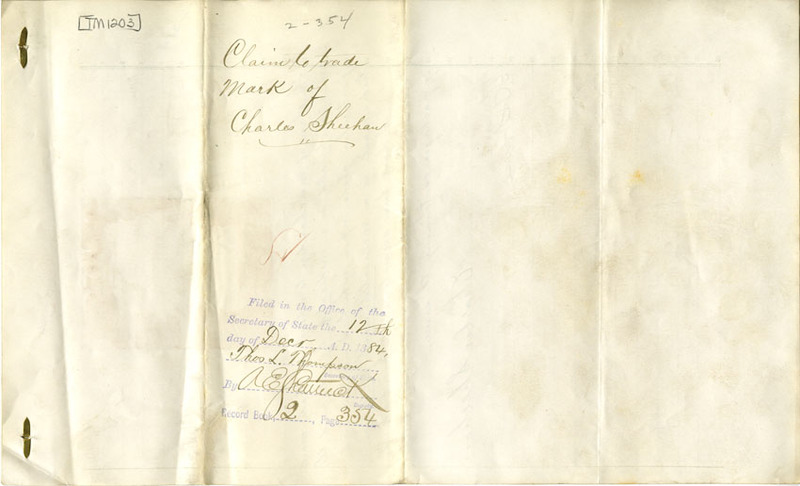 [TM1203]
2-354
Claim to trade
Mark of
Charles Sheehan
Filed in the Office of the
Secretary of State the 12th
day of Decr A. D. 1884,
Thos L. Thompson
By A E
Record Book 2, Page 354